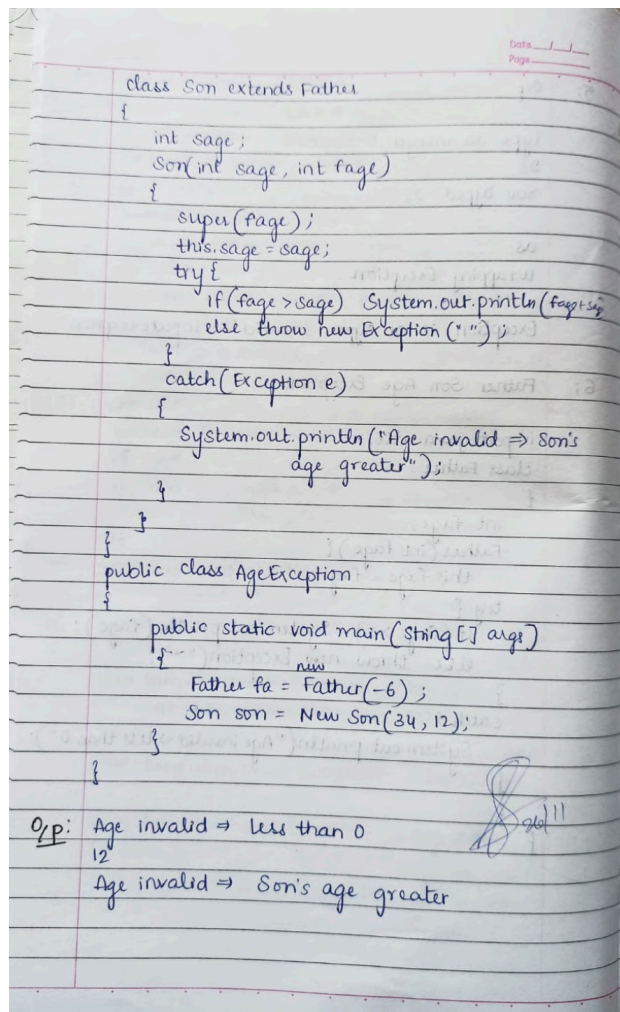 Date
Page
class Son extends Father
{
int sage;
Son(int sage, int fage)
{
super(fage);
this.sage = sage;
try {
if(fage > sage) System.out.println(fage+sage
else throw new Exception(" ");
}
catch(Exception e)
{
System.out.println("Age invalid ⇒ Son's
age greater");
}
}
}
public class AgeException
{
public static void main(String [] args)
{
new
Father fa = Father(-6);
Son son = New Son(34, 12);
}
}
26/11
O/p: Age invalid ⇒ less than 0
12
Age invalid ⇒ Son's age greater